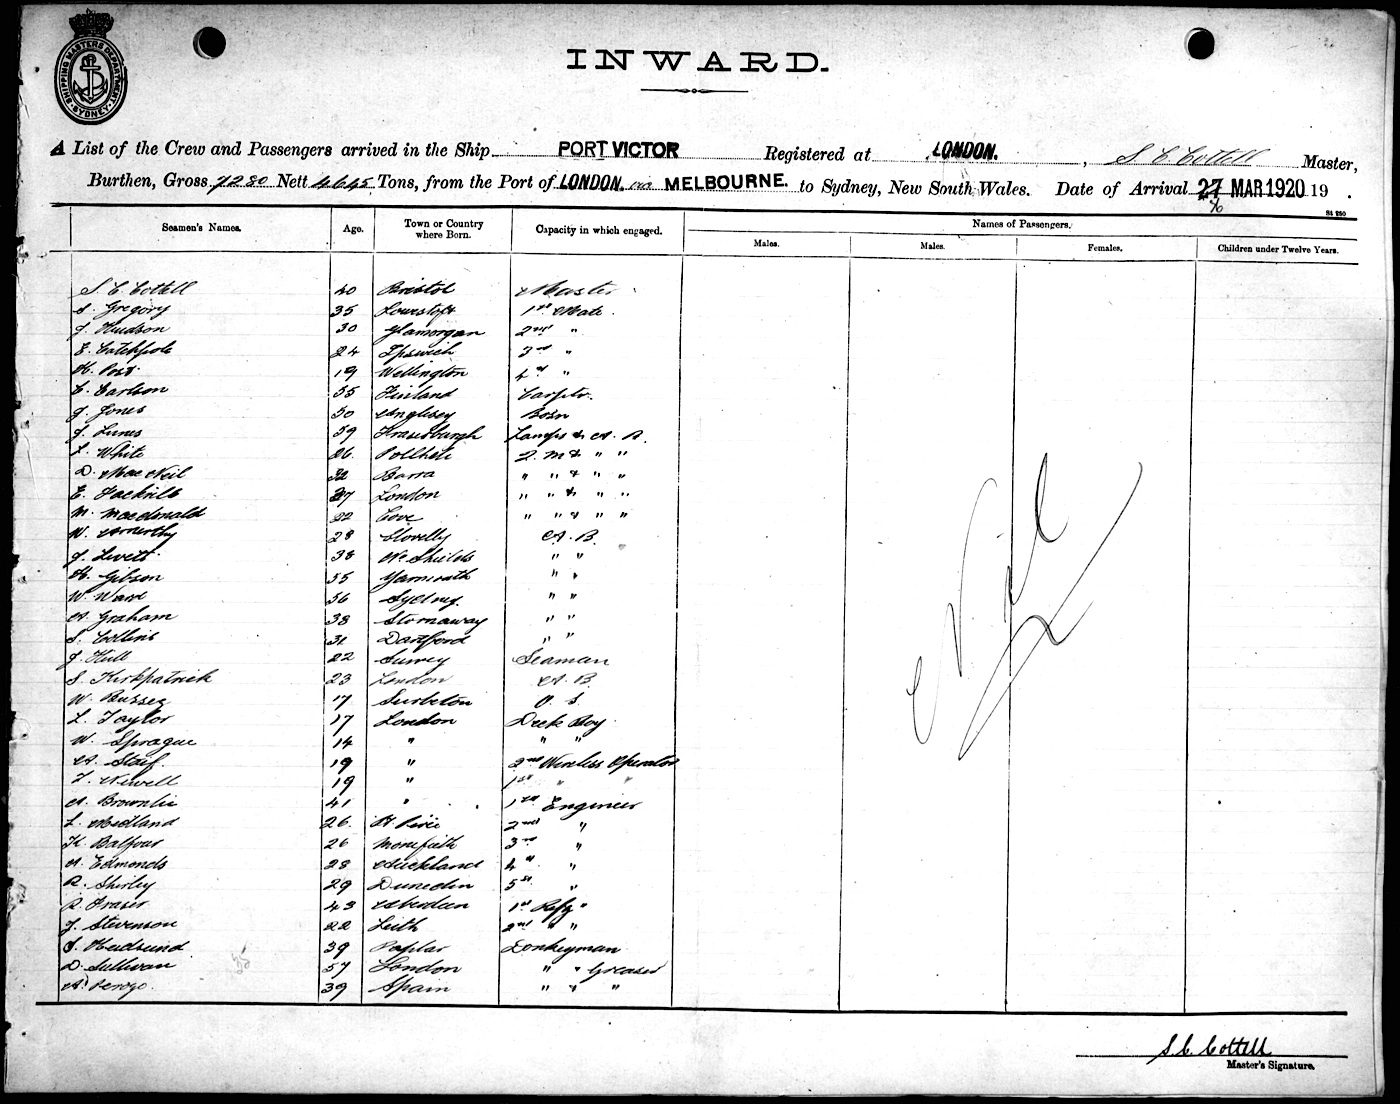 SHIPPING MASTERS DEPARTMENT
SYDNEY
INWARD.
A List of the Crew and Passengers arrived in the Ship PORT VICTOR Registered at LONDON. , S C Cottell Master,
Burthen, Gross 7280 Nett 4645 Tons, from the Port of LONDON. via MELBOURNE. to Sydney, New South Wales. Date of Arrival 27 MAR 1920 19 .
Seamen's Names. Age. Town or Country where Born. Capacity in which engaged. Names of Passengers.
Males. Males. Females. Children under Twelve Years.
S C Cottell 40 Bristol Master
S. Gregory 35 Lowestoft 1st Mate.
J. Hudson 30 Glamorgan 2nd "
E. Catchpole 24 Ipswich 3rd "
H. Post 19 Wellington 4th "
C. Carlson 55 Finland Carptr.
J. Jones 50 Anglisey Bosn
J. Lunes 59 Lamps & A. B.
L. White 26 2. M & " "
D. MacNeil 32 Barra " " & " "
E. 27 London " " & " "
M. Macdonald 22 Cove " " & " "
W. 28 Clovelly A. B.
J. Levett 38 No Shields " "
H. Gibson 55 Yarmouth " "
W. Ward 56 Sydney. " "
A. Graham 38 Stornaway " "
S. Collins 31 Dartford " "
J. Hull 22 Surrey Seaman
S. Kirkpatrick 23 London A. B.
W. 17 Surbiton O. S.
L. Taylor 17 London Deck Boy
W. Sprague 14 " " "
A. 19 " 2nd Wireless Operator
T. Newell 19 " 1st " "
A. Brownlie 41 " 1st Engineer
L. Medland 26. 2nd "
K. Balfour 26 Monifieth 3rd "
A. Edmonds 28 Auckland 4th "
R. Shirley 29 Dunedin 5th "
R. Fraser 43 Aberdeen 1st Refg "
J. Stevenson 22 Leith 2nd " "
S. 39 Poplar Donkeyman
D. Sullivan 57 London " " Greaser
A. 39 Spain " " "
Nil
S. C. Cottell
Master's Signature.